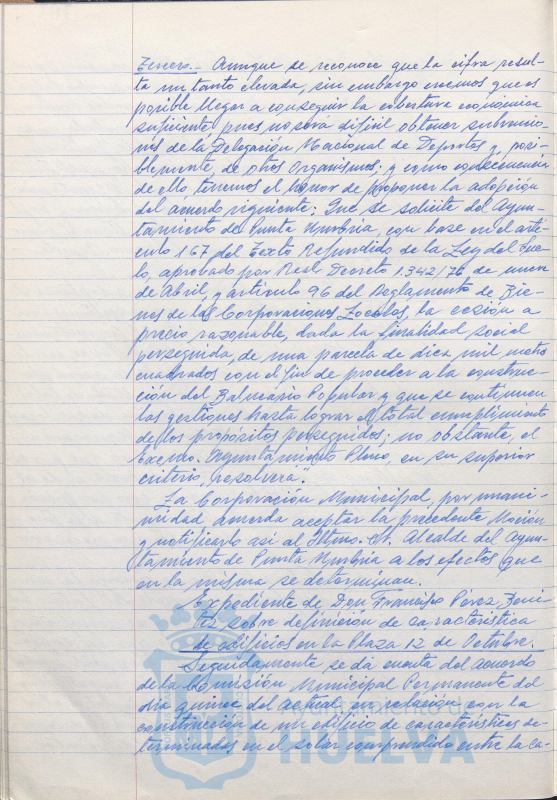 Tercero.- Aunque se reconoce que la cifra resul-
ta un tanto elevada, sin embargo creemos que es
posible llegar a conseguir la cobertura económica
suficiente pues no será difícil obtener subvencio-
nes de la Delegación Nacional de Deportes y, posi-
blemente, de otros Organismos; y como consecuencia
de ello tenemos el honor de proponer la adopción
del acuerdo siguiente: Que se solicite del Ayun-
tamiento de Punta Umbría, con base en el artí-
culo 167 del Texto Refundido de la Ley del Sue-
lo, aprobado por Real Decreto 1.342/76 de nueve
de Abril, y artículo 96 del Reglamento de Bie-
nes de las Corporaciones Locales, la cesión a
precio razonable, dada la finalidad social
perseguida, de una parcela de diez mil metros
cuadrados con el fin de proceder a la construc-
ción del Balneario Popular y que se continuen
las gestiones hasta lograr el total cumplimiento
de los propósitos perseguidos; no obstante, el
Excmo. Ayuntamiento Pleno, en su superior
criterio, resolverá".
La Corporación Municipal, por unani-
midad acuerda aceptar la precedente Moción
y notificarlo así al Iltmo. Sr. Alcalde del Ayun-
tamiento de Punta Umbría a los efectos que
en la misma se determinan.
Expediente de Don Francisco Pérez Bení-
tez sobre definición de característica
de edificios en la Plaza 12 de Octubre.
Seguidamente se da cuenta del acuerdo
de la Comisión Municipal Permanente del
día quince del actual, en relación con la
construcción de un edificio de características de-
terminadas en el solar comprendido entre la ca-
HUELVA